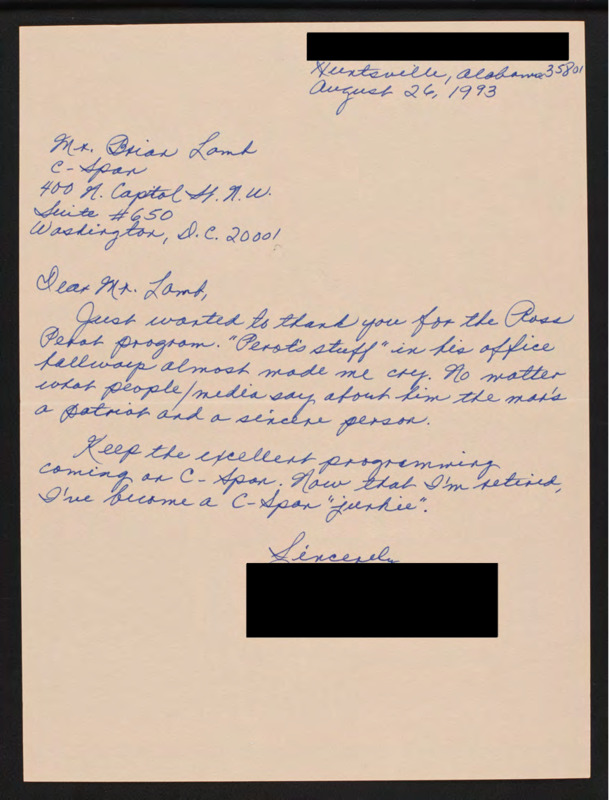 Huntsville, Alabama 35801
August 26, 1993
Mr. Brian Lamb
C-Span
400 N. Captol St. N.W.
Suite #650
Washington, D.C. 20001
Dear Mr. Lamb,
Just wanted to thank you for the Ross
Perot program. "Perot's stuff" in his office
hallways almost made me cry. No matter
what people/media say about him the man's
a patriot and a sincere person.
Keep the excellent programming
coming on C-Span. Now that I'm retired,
I've become a C-Span "junkie".
Sincerely